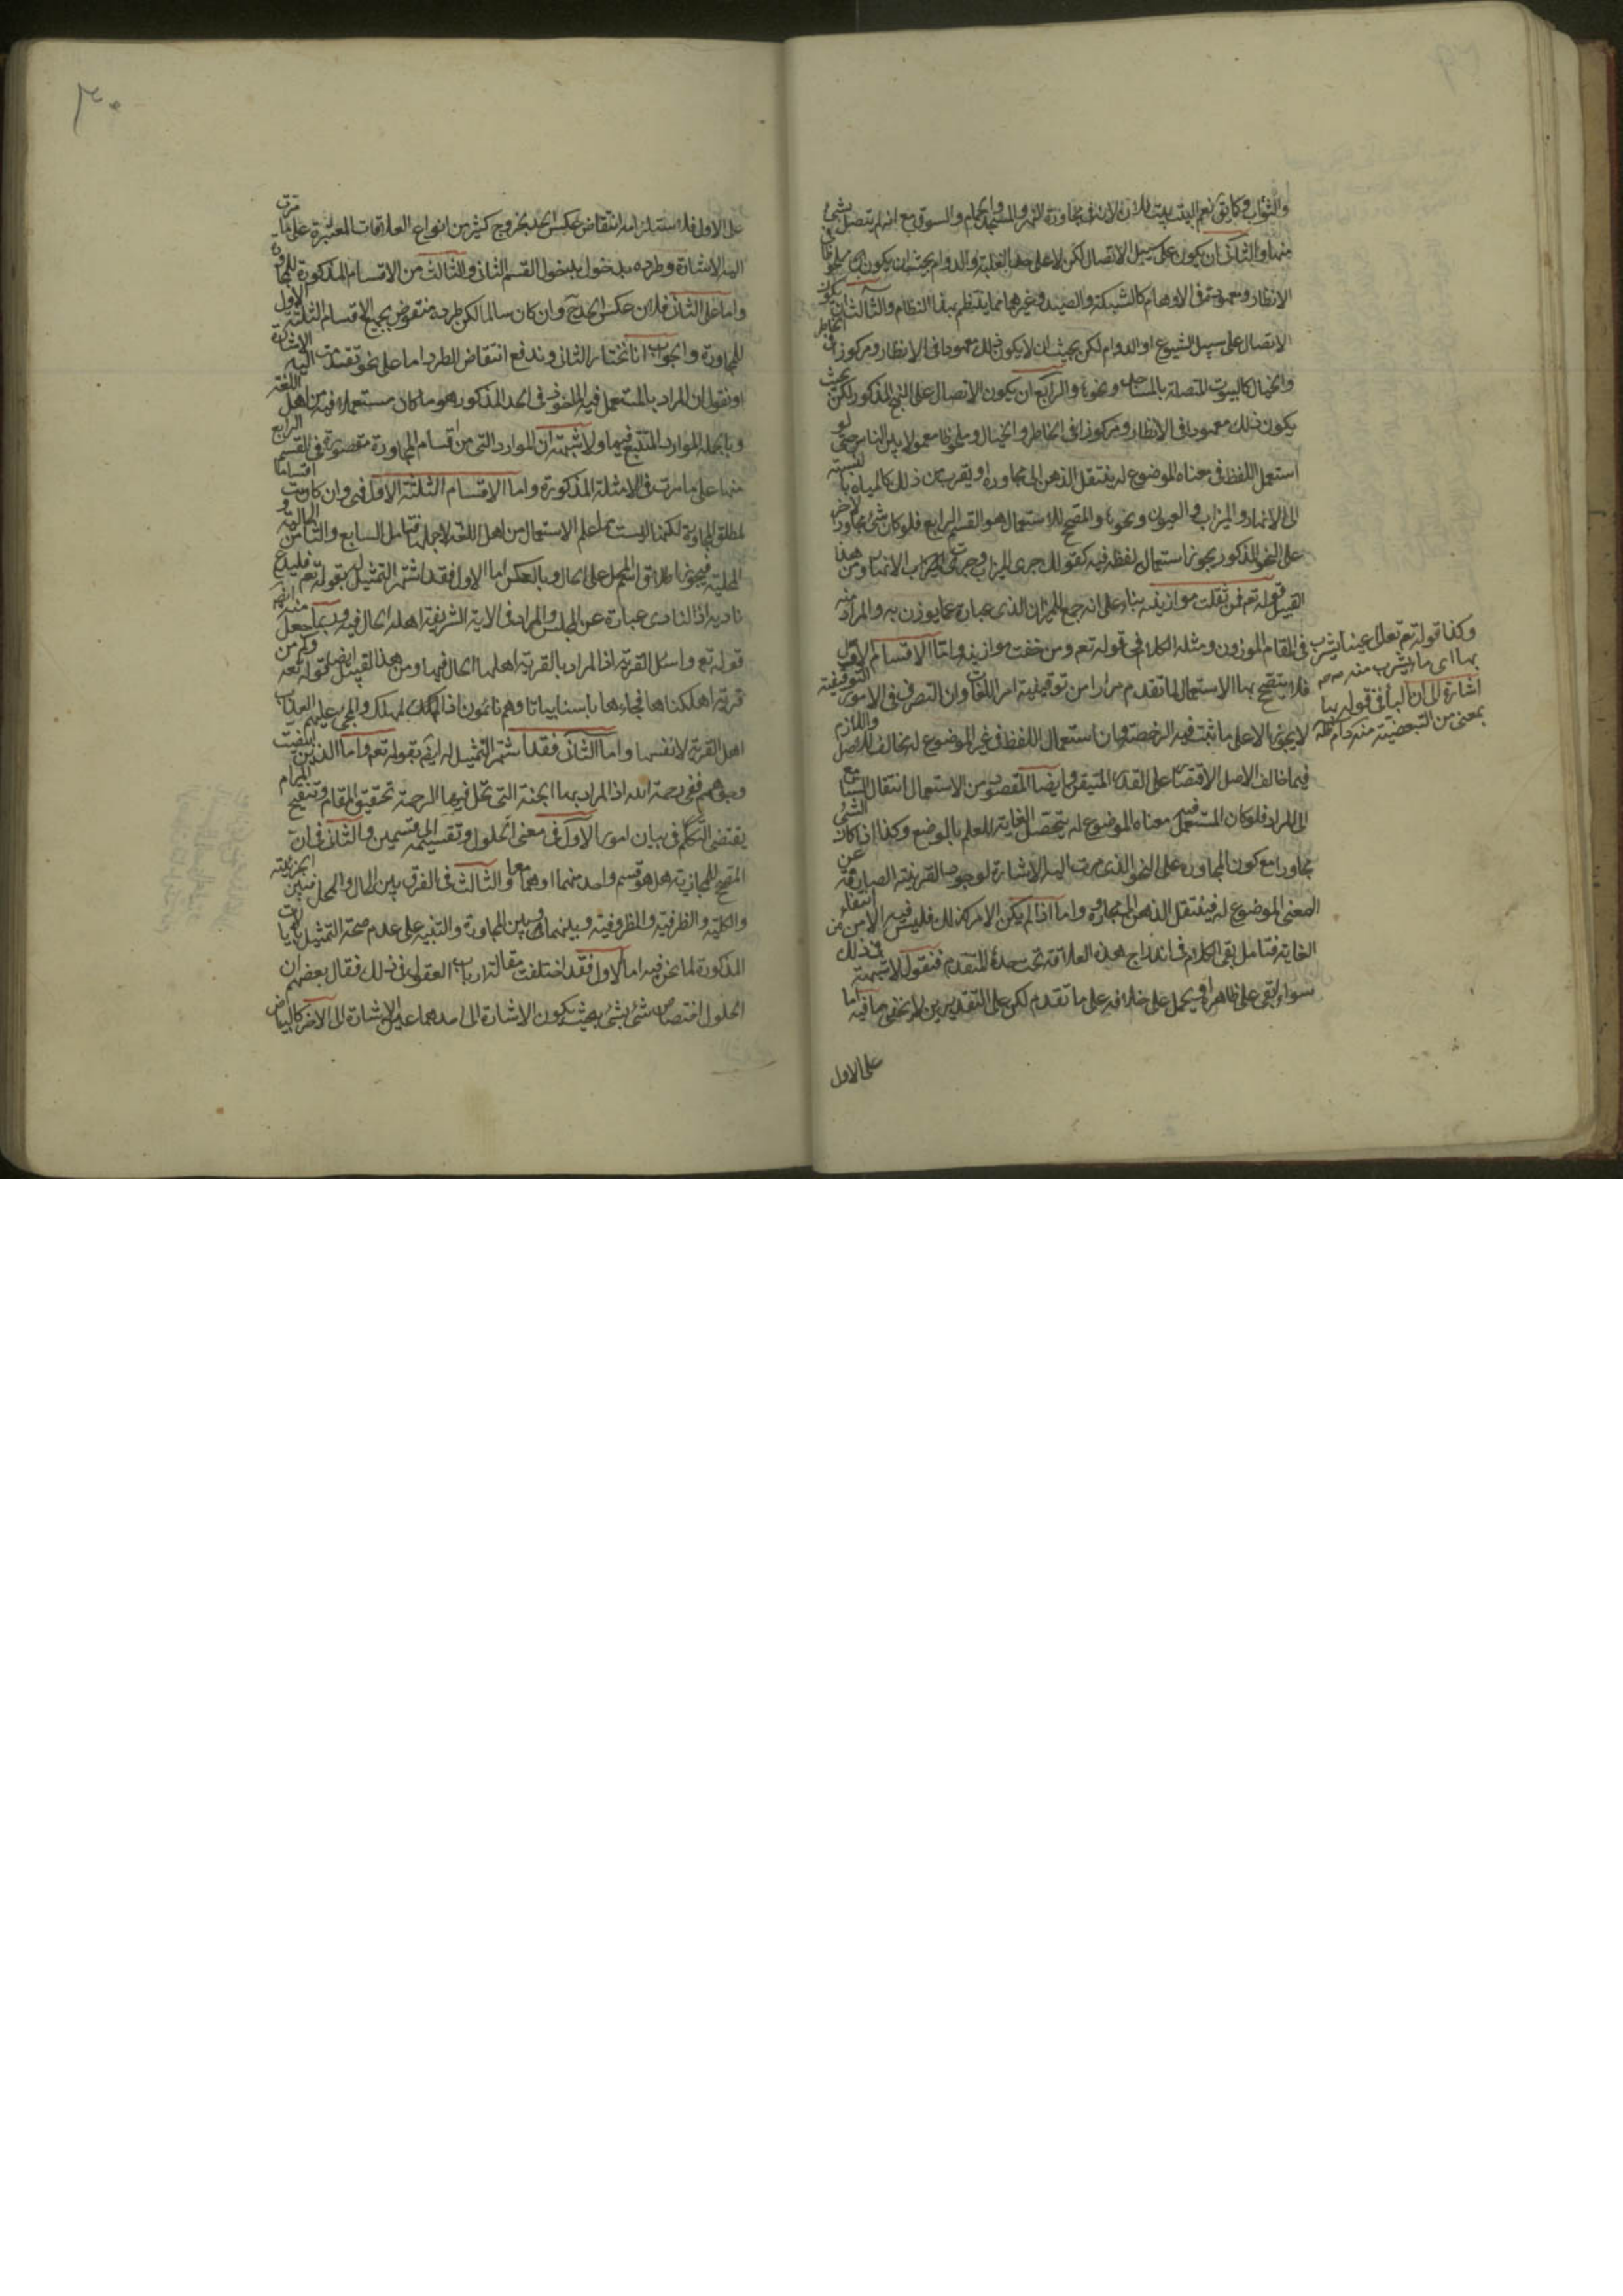 والثواب وكما يق نعم البيت بيت فلان لانه في مجاورة النهر والمسجد والحمام والسوق مع انه لم يتصل بشئ
منها والثاني ان يكون على سبيل الاتصال لكن لا على جهة الغلبة والدوام بحيث ان يكون ملحوظا في
الانظار ومعهودة في الاوهام كالشبكة والصيد وغيرهما مما ينتظم بهذا النظام والثالث ان يكون
الاتصال على سبيل الشيوع او الدوام لكن بحيث ان لا يكون ذلك معهودا في الانظار ومركوزا في الخاطر
والخيال كالبيوت المتصلة بالمساجد ونحوها والرابع ان يكون الاتصال على النهج المذكور لكن بحيث
يكون ذلك معهودا في الانظار ومركوزا في الخاطر والخيال وملحوظا معمولا بين الناس حتى لو
استعمل اللفظ في معناه الموضوع له ينتقل الذهن الى مجاوره او يقرب من ذلك كالمياه بالنسبة
الى الانهار والميزاب والعيون ونحوها والمصحح للاستعمال هو القسم الرابع فلو كان شئ مجاورا لاخر
على النحو المذكور يجوز استعمال لفظه فيه كقولك جرى الميزاب وجرت الانهار ومن هذا
القبيل قوله تعم فمن ثقلت موازينه بناء على انه جمع للميزان الذي عبارة عما يوزن به والمراد منه
في المقام الموزون ومثله الكلام في قوله تعم ومن خفت موازينه واما الاقسام الاول
فلا يتصحح بها الاستعمال لما تقدم مرارا من توقيفية امر اللغات وان التصرف في الامور التوقيفية
لا يجوز الا على ما ثبت فيه الرخصة وان استعمال اللفظ في غير الموضوع له مخالف للاصل واللازم
فيما خالف الاصل الاقتصار على القدر المتيقن وايضا المقصود من الاستعمال انتقال السامع
الى المراد فلو كان المستعمل فيه معناه الموضوع له يتحصل الغاية للعلم بالوضع وكذا اذا كان الشئ
مجاورا مع كون المجاورة على النحو الذي مرت اليه الاشارة لوجود القرينة الصارفة عن
المعنى الموضوع له فينتقل الذهن الى مجاوره واما اذا لم يكن الامر كذلك فليس فيه الامن من انتفاء
الغاية فتامل بقي الكلام في اندراج هذه العلاقة تحت حده المتقدم فنقول لا شبهة في ذلك
سواء ابقى على ظاهره او يحمل على خلافه على ما تقدم لكن على التقديرين لا يخفى ما فيه اما
على الاول
وكذا قوله تعم تعلل عينا يشرب
بها اى ما يشرب منه
اشارة الى ان الباء في قوله بها
بمعنى من التبعضية منه دام ظله
٣٠
على الاول فلاستلزامه انتقاض عكس الحد بخروج كثير من انواع العلاقات المعتبرة على ما مرت
اليه الاشارة وطرده بدخول القسم الثاني والثالث من الاقسام المذكورة للمجاورة
واما على الثاني فلان عكس الحد وان كان سالما لكن طرده منتقض بجميع الاقسام الثلثة الاول
للمجاورة والجواب انا نختار الثاني وندفع انتقاض الطرد اما على نحو تقدمت اليه الاشارة
او نقول ان المراد بالمستعمل فيه الماخوذ في الحد المذكور هو ما كان مستعملا فيه من اهل اللغة
وبالجملة الموارد المتتبع فيها ولا شبهة ان الموارد التي من اقسام المجاورة مقصورة في القسم الرابع
منها على ما مرت في الامثلة المذكورة واما الاقسام الثلثة الاول فهي وان كانت اقساما
لمطلق المجاورة لكنها ليست مما علم الاستعمال من اهل اللغة لاجلها فتامل السابع والثامن الحالية و
المحلية فيجوز اطلاق اسم المحل على الحال وبالعكس اما الاول فقد اشتهر التمثيل له بقوله تعم فليدع
ناديه اذ النادي عبارة عن المجلس والمراد في الاية الشريفة اهله الحال فيه وربما جعل منه ايضا
قوله تع واسئل القرية اذ المراد بالقرية اهلها الحال فيها ومن هذا القبيل ايضا قوله تعم وكم من
قرية اهلكناها فجاءها باسنا بياتا وهم نائمون اذ المهلك والمجئ عليهم العذاب
اهل القرية لا نفسها واما الثاني فقد اشتهر التمثيل له ايضا بقوله تعم واما الذين ابيضت
وجوههم ففي رحمة الله اذ المراد بها الجنة التي تحل فيها الرحمة تحقيق المقام وتنقيح المرام
يقتضي التكلم في بيان امور الاول في معنى الحلول وتقسيمه الى قسمين والثاني في ان
المصحح للمجازية هل هو قسم واحد منهما او هما معا والثالث في الفرق بين الحال والمحل وبين الجزئية
والكلية والظرفية والمظروفية وبينهما وبين المجاورة والتنبيه على عدم صحة التمثيل بالايات
المذكورة لما نحن فيه اما الاول فقد اختلفت مقالة ارباب العقول في ذلك فقال بعضهم ان
الحلول اختصاص شئ بشئ بحيث يكون الاشارة الى احدهما عين الاشارة الى الاخر كالبياض